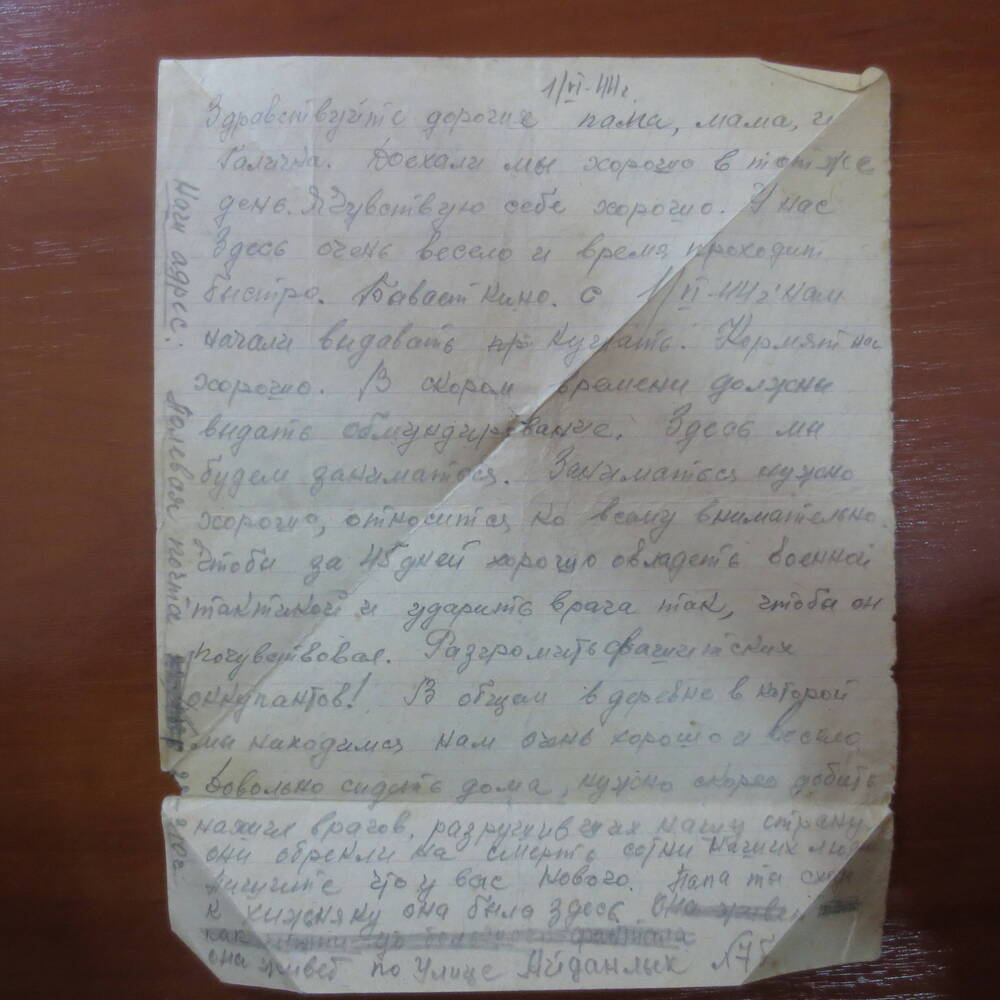 1/VI-44г.
Здравствуйте дорогие папа, мама, и
Галичка. Доехали мы хорошо в тот же
день. Я чувствую себе хорошо. У нас
здесь очень весело и время проходит
быстро. Бавает кино. С 1/VI-44г нам
начали выдавать кушать. Кормят на
хорошо. В скором времени должны
выдать обмундирование. Здесь мы
будем заниматься. Заниматься нужно
хорошо, относится ко всему внимательно.
Чтобы за 45 дней хорошо овладеть военной
тактикой и ударить врага так, чтобы он
почувствовал. Разгромить фашистских
оккупантов! В общем в деревне в которой
мы находимся нам очень хорошо и весело.
Довольно сидеть дома, нужно скорее добить
наших врагов, разрушивших нашу страну
они обрекли на смерть сотни наших
Пишите что у вас нового. Папа ты
к хижняку она была здесь она живет
как
она живет по улице Айданлык №7б
Наш адрес: Полевая почта